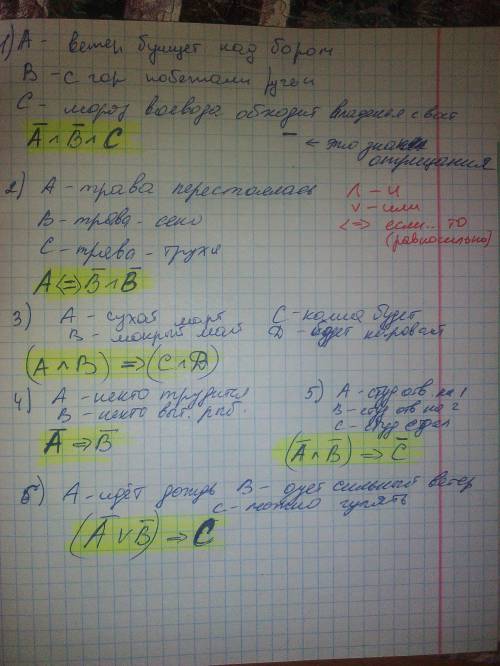 1) A - ветер бушует над бором
B - с гор побежали ручьи
C - мороз воевода обходит владенья свои
A̅ ∧ B̅ ∧ C
— ← это знак отрицания
2) A - трава перестоялась
B - трава - сено
C - трава - труха
A <=> B̅ ∧ B̅
∧ - и
∨ - или
<=> если.. то
(равносильно)
3) A - сухой март C - каша будет
B - мокрый май D - будет каравай
(A ∧ B) => (C ∧ D)
4) A - некто трудится
B - некто выт. рыб.
A̅ => B̅
5) A - студ отв. на 1
B - студ отв на 2
C - студ сдал
(A̅ ∧ B̅) => C̅
6) A - идёт дождь B - дует сильный ветер
C - можно гулять
(A̅ ∨ B̅) => C